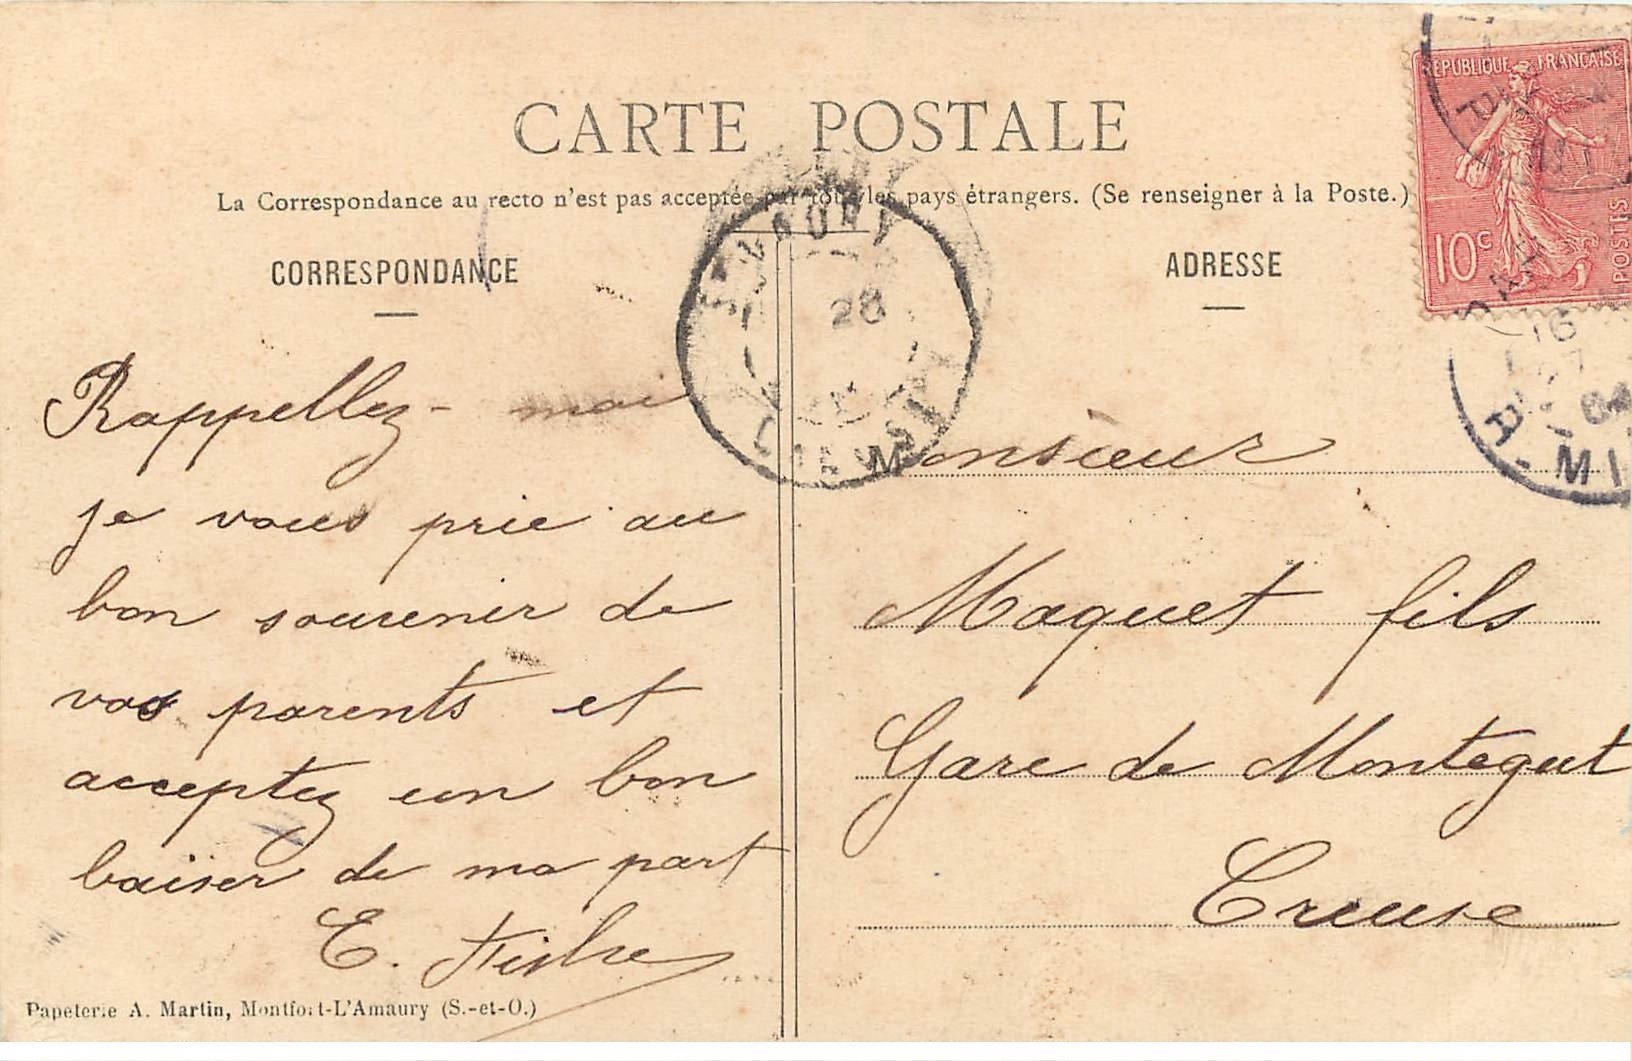 CARTE POSTALE
La Correspondance au recto n'est pas acceptée par tous les pays étrangers. (Se renseigner à la Poste.)
CORRESPONDANCE
Rappellez-moi
je vous prie au
bon souvenir de
vos parents et
acceptez un bon
baiser de ma part
E.
Papeterie A. Martin, Montfort-L'Amaury (S.-et-O.)
ADRESSE
Monsieur
Maquet fils
Gare de Montegut
Creuse
REPUBLIQUE FRANÇAISE
10c
POSTES
28
16
04